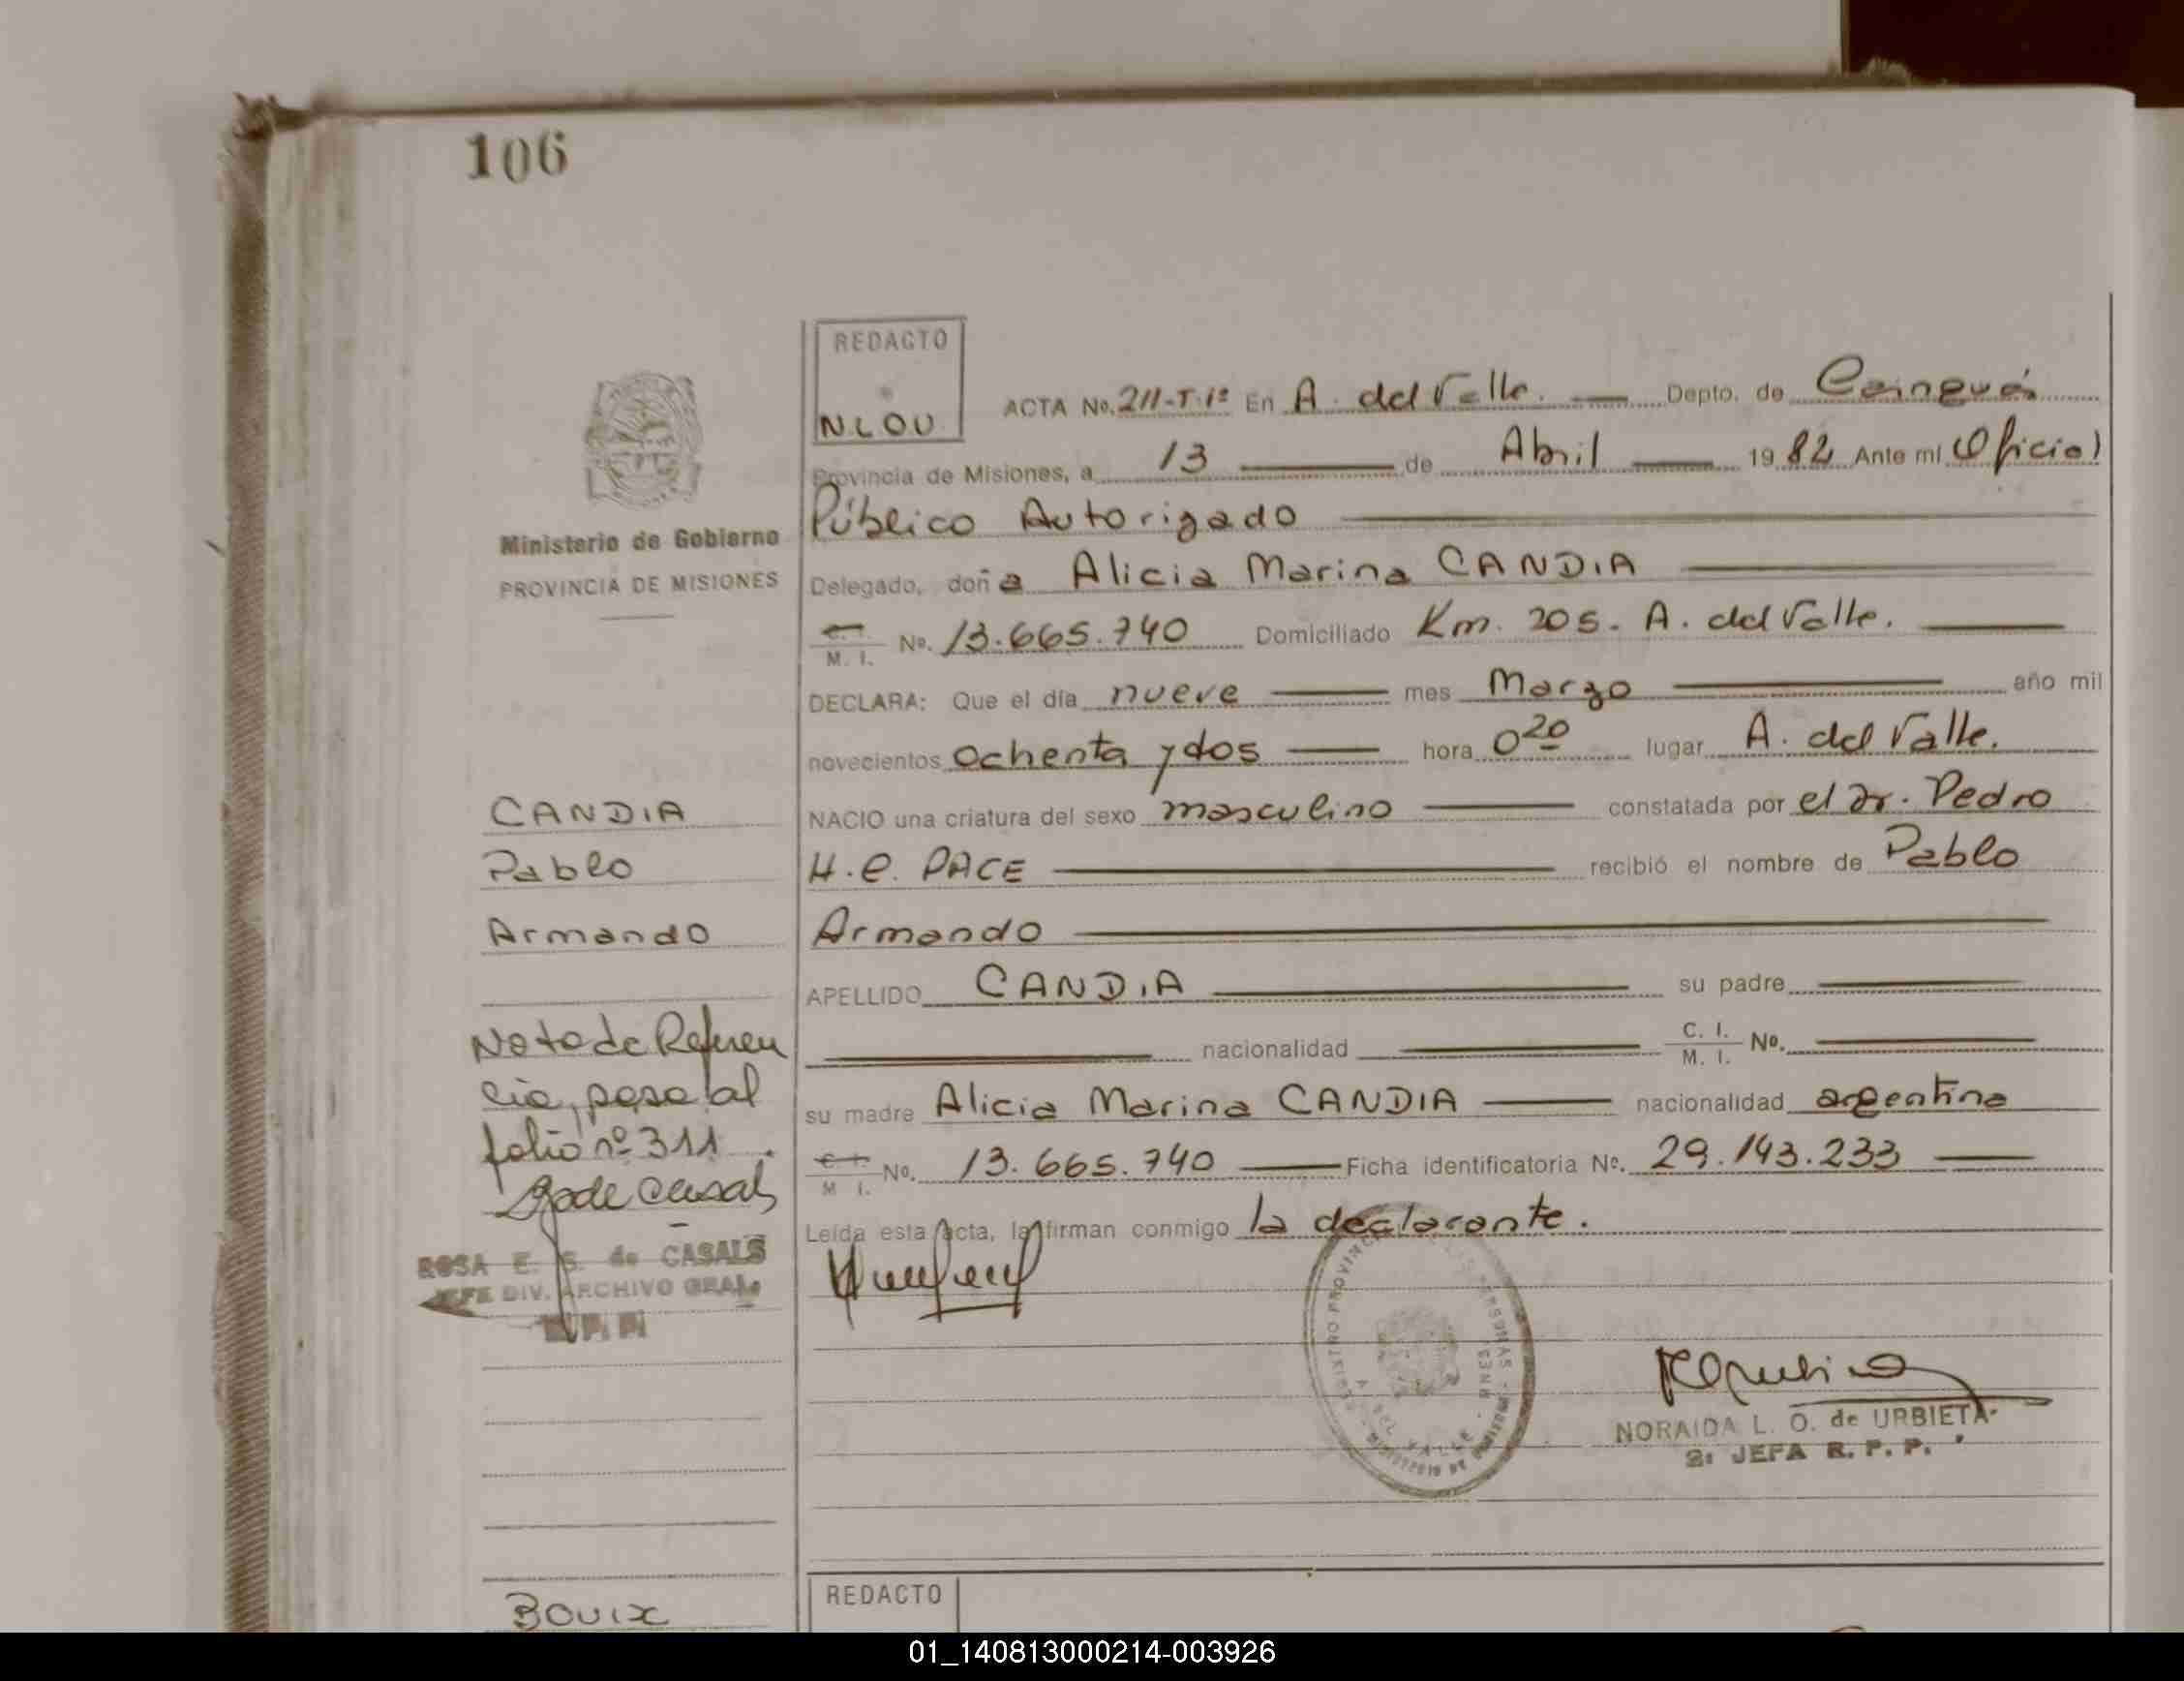 106
REDACTO
N.L.O.U.
ACTA No. 211-T.1º En A. del Valle. Depto. de Cainguás
Provincia de Misiones, a 13 de Abril 1982 Ante mí Oficial
Público Autorizado
Delegado, doña Alicia Marina CANDIA
C. I. M. I. No. 13.665.740 Domiciliado Km. 205. A. del Valle.
DECLARA: Que el día nueve mes Marzo año mil
novecientos ochenta y dos hora 0 20 lugar A. del Valle.
NACIO una criatura del sexo masculino constatada por el Dr. Pedro
H.C. PACE recibió el nombre de Pablo
Armando
APELLIDO CANDIA su padre
nacionalidad C. I. M. I. No.
su madre Alicia Marina CANDIA nacionalidad argentina
C. I. M. I. No. 13.665.740 Ficha identificatoria No. 29.143.233
Leída esta acta, la firman conmigo la declarante.
NORAIDA L. O. de URBIETA
2ª JEFA R. P. P.
Ministerio de Gobierno
PROVINCIA DE MISIONES
CANDIA
Pablo
Armando
Nota de Referen
cia, pasa al
folio nº 311
S de Casals
ROSA E. S. de CASALS
JEFE DIV. ARCHIVO GRAL.
R. P. P.
BOUIX
REDACTO
01_140813000214-003926